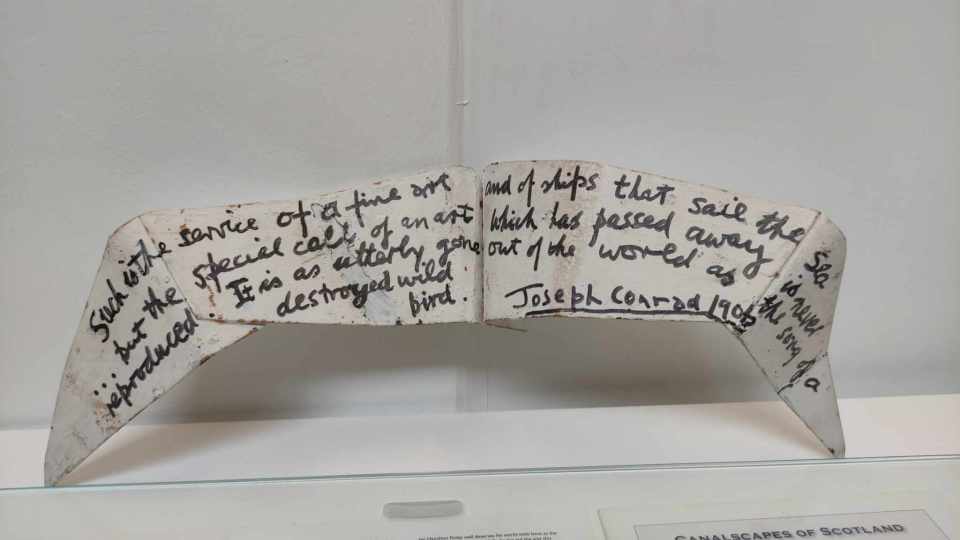 Such is the service of a fine art and of ships that sail the sea
... but the special call of an art which has passed away is never
reproduced It is as utterly gone out of the world as the song of a
destroyed wild
bird.
Joseph Conrad 1906
CANALSCAPES OF SCOTLAND